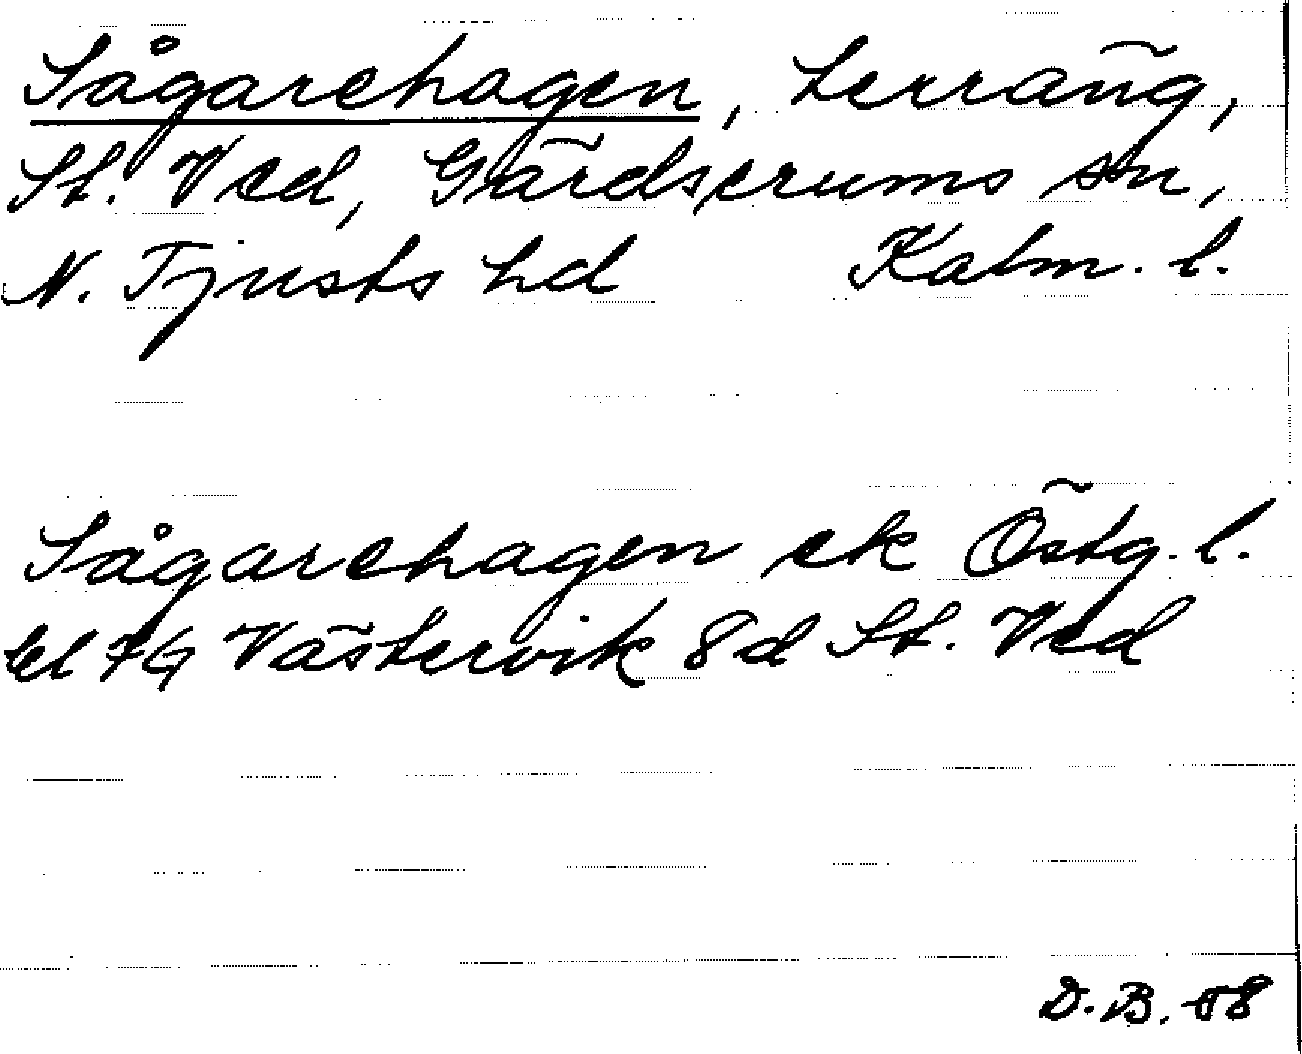 Sågarehagen, terräng,
St. Ved, Gärdserums sn,
N. Tjusts hd Kalm. l.
Sågarehagen ek Östg. l.
bl 7G Västervik 8d St. Ved
D. B. 58